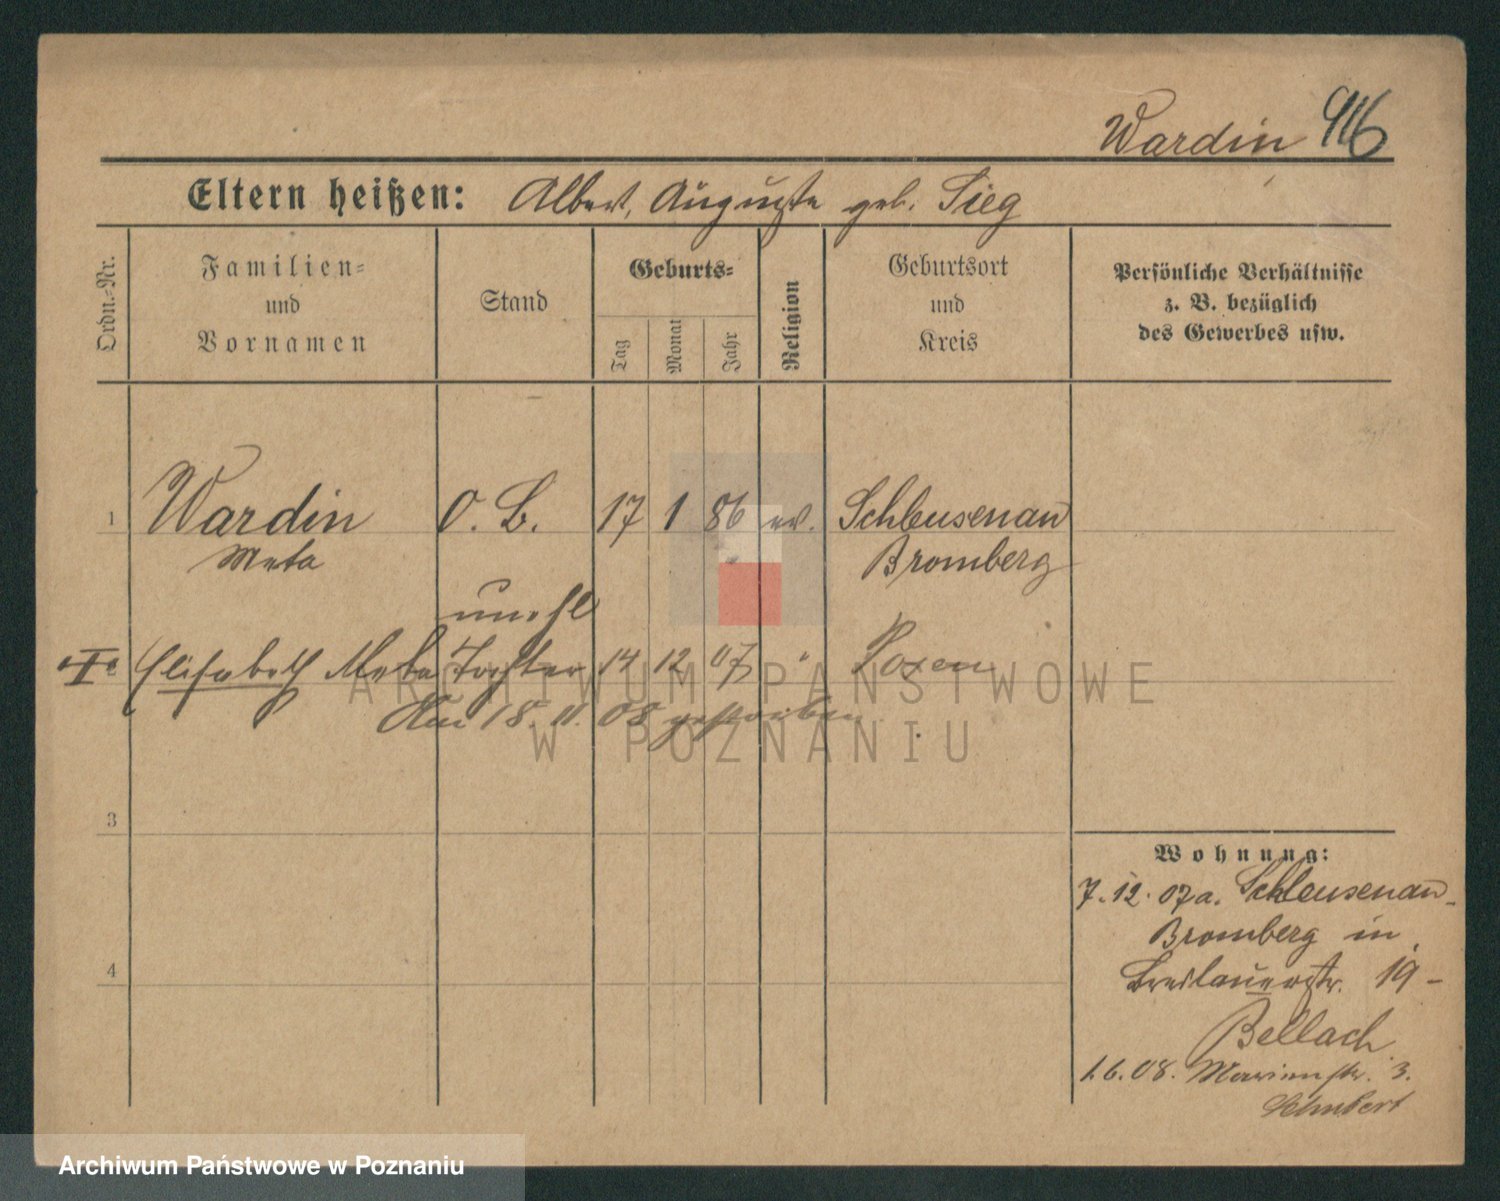 Wardin 916
Eltern heißen: Albert, Auguste geb. Sieg
Ordn.-Nr.
Familien-
und
Vornamen
Stand
Geburts-
Tag
Monat
Jahr
Religion
Geburtsort
und
Kreis
Persönliche Verhältnisse
z. B. bezüglich
des Gewerbes usw.
1 Wardin O. B. 17 1 86 ev. Schleusenau
Meta Bromberg
unehl
Elisabeth Meta Tochter 14 12 07 " Posen
Am 18. 11. 08 gestorben
ARCHIWUM PAŃSTWOWE
W POZNANIU
3
4
Wohnung:
7.12.07 a. Schleusenau-
Bromberg in
Breslauerstr. 19 -
Bellach
1.6.08. Marienstr. 3.
Schubert
Archiwum Państwowe w Poznaniu